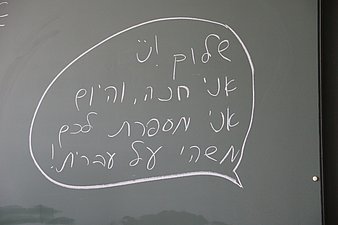 שלום! ש
אני חנה, והיום
אני מספרת לכם
משהי על עברית!